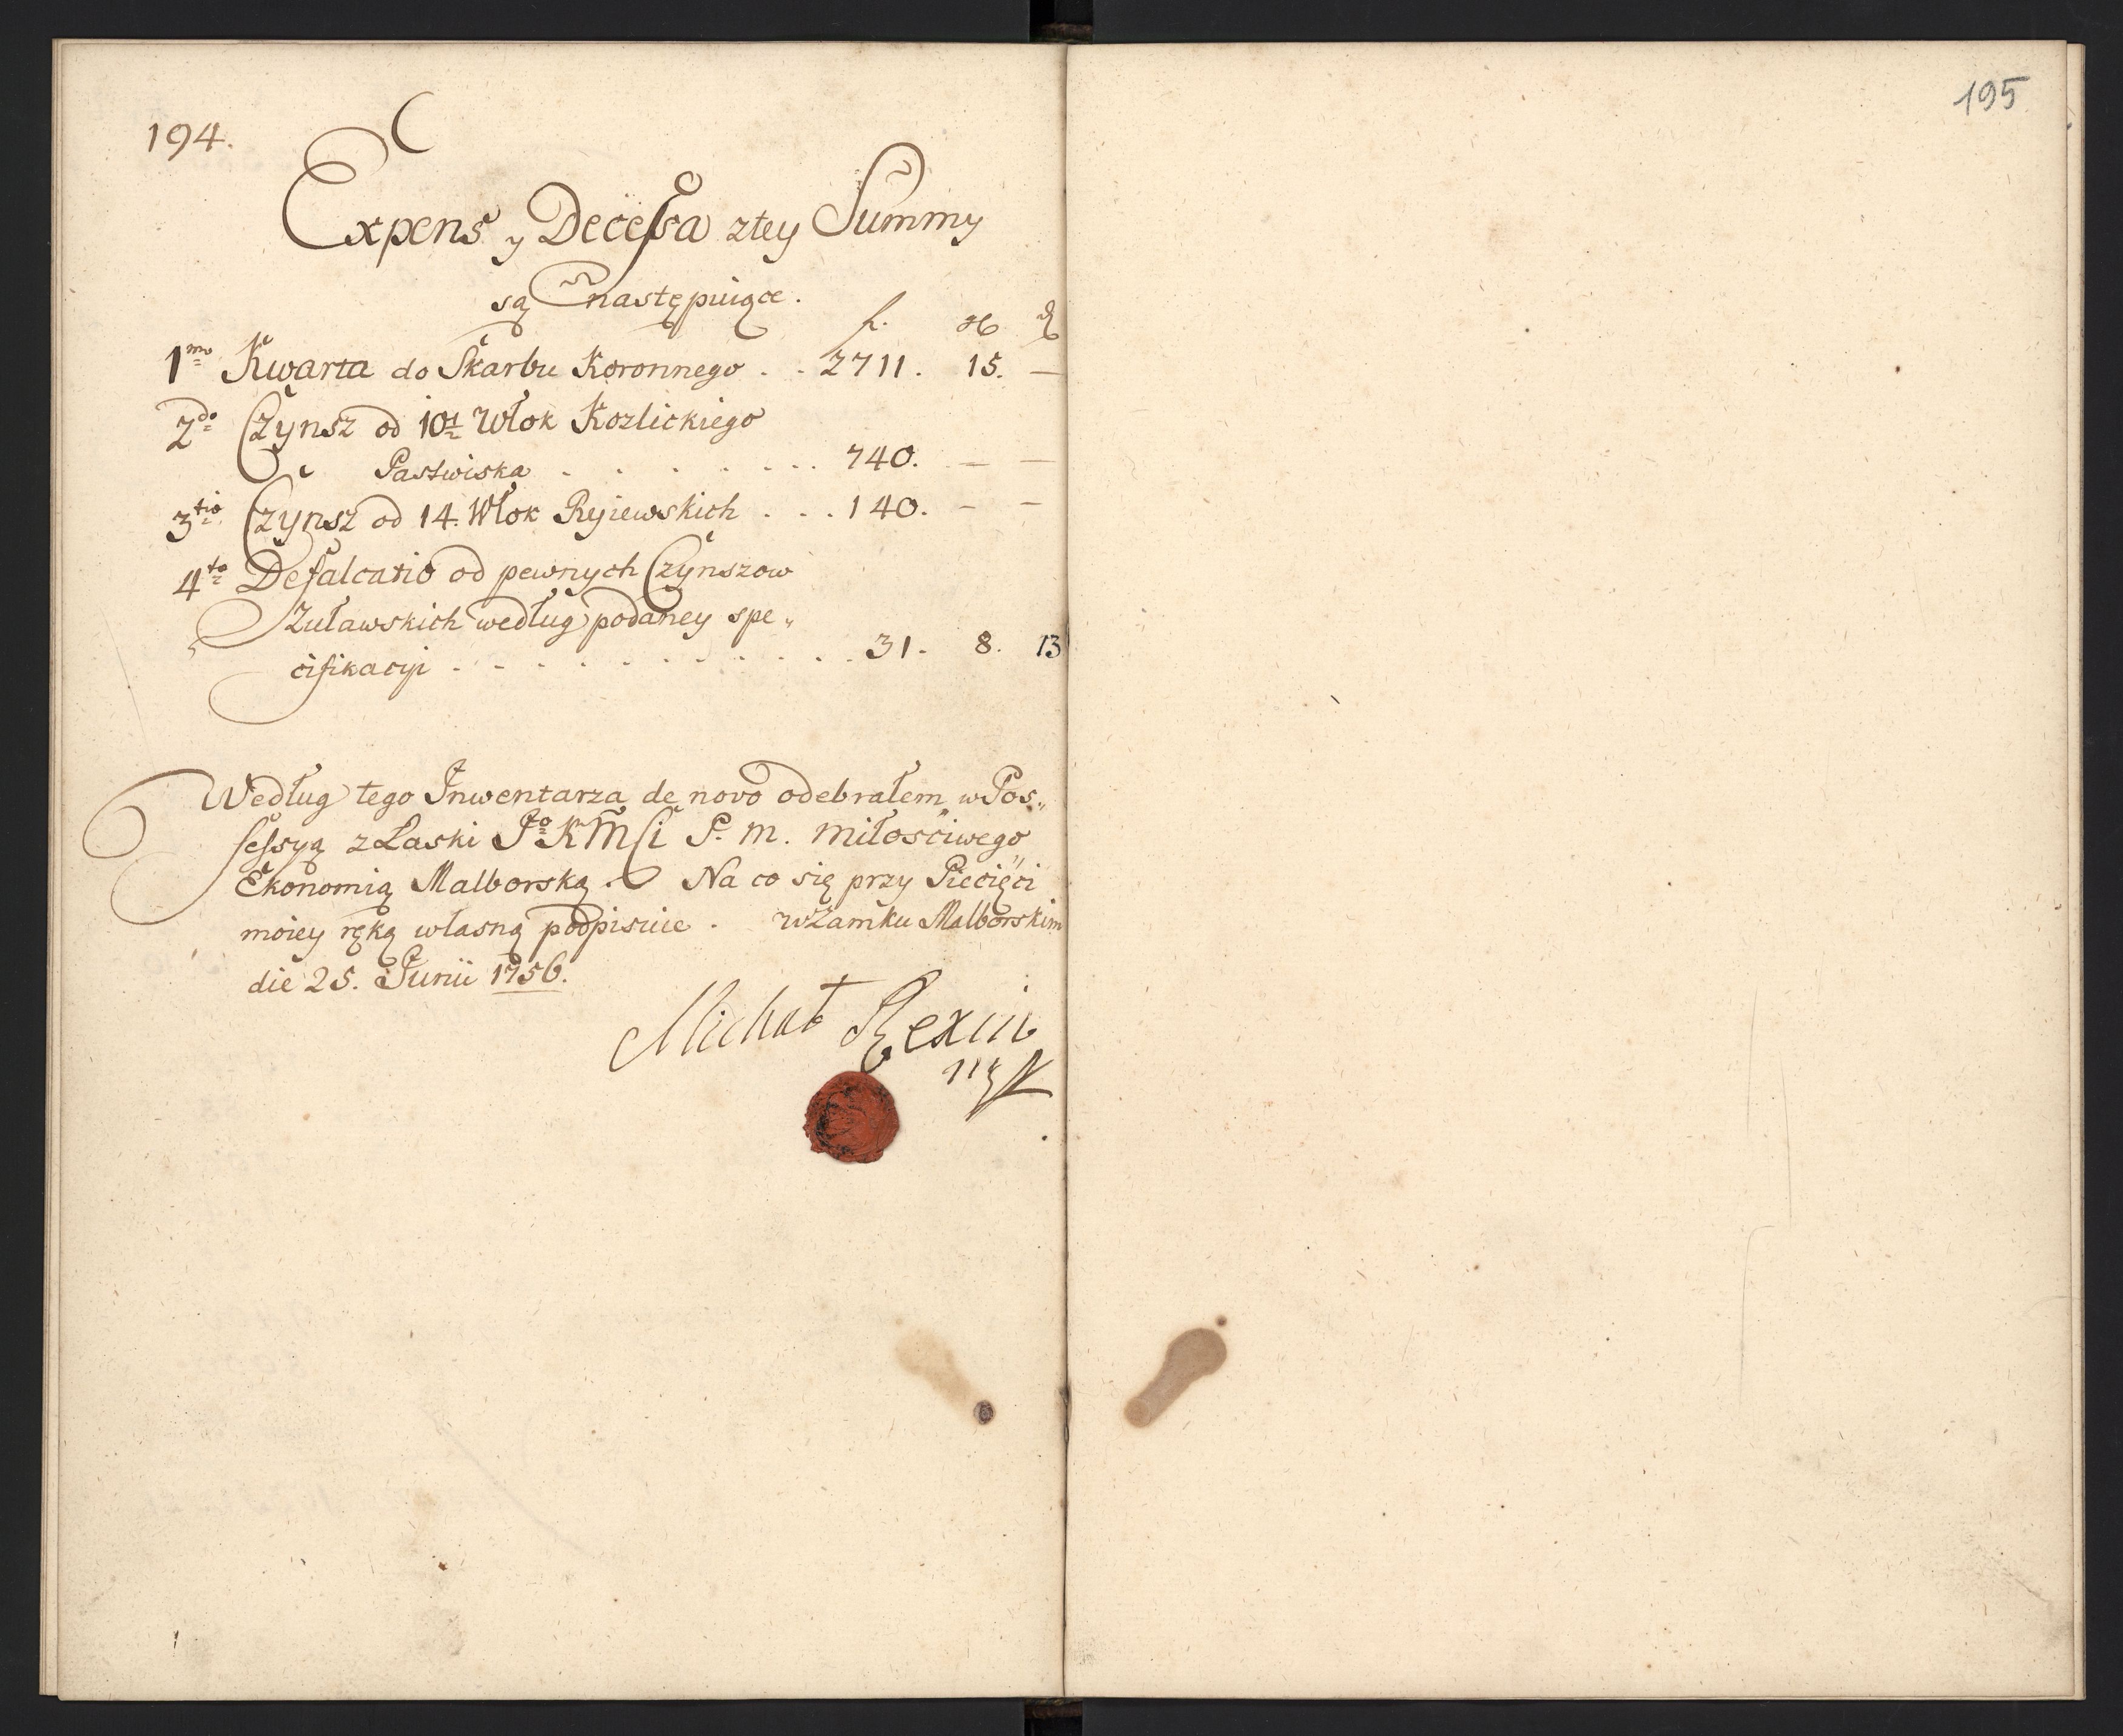 194.
Expens y Decessa z tey Summy
są następuiące.
fl. gr. d.
1mo Kwarta do Skarbu Koronnego . . 2711. 15. —
2do Czynsz od 10½ Włok Kozlickiego
Pastwiska . . . . . . . . 740. — —
3tio Czynsz od 14. Włok Ryiewskich . . . 140. — —
4to Defalcatio od pewnych Czynszow
Żuławskich według podaney spe„
cifikacyi . . . . . . . . . . 31. 8. 13
Według tego Inwentarza de novo odebrałem w Pos„
sessyą z Łaski Jo KMSci P. m. miłościwego
Ekonomią Malborską. Na co się przy Pieczęci
moiey ręką własną podpisuie. w Zamku Malborskim
die 25. Junii 1756.
Michał Rexin
195